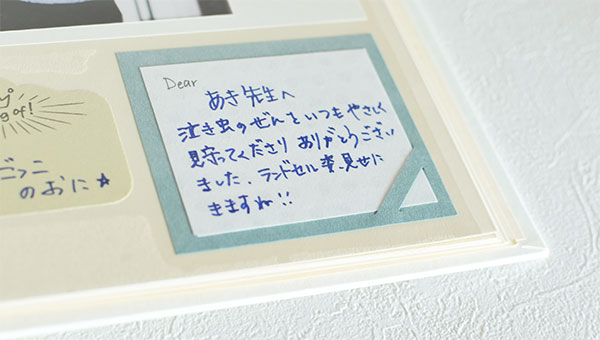 g of!
ごっこ
のおに★
Dear
あき先生へ
泣き虫のぜんをいつもやさしく
見守ってくださり ありがとうござい
ました。ランドセル姿、見せに
きますね!!